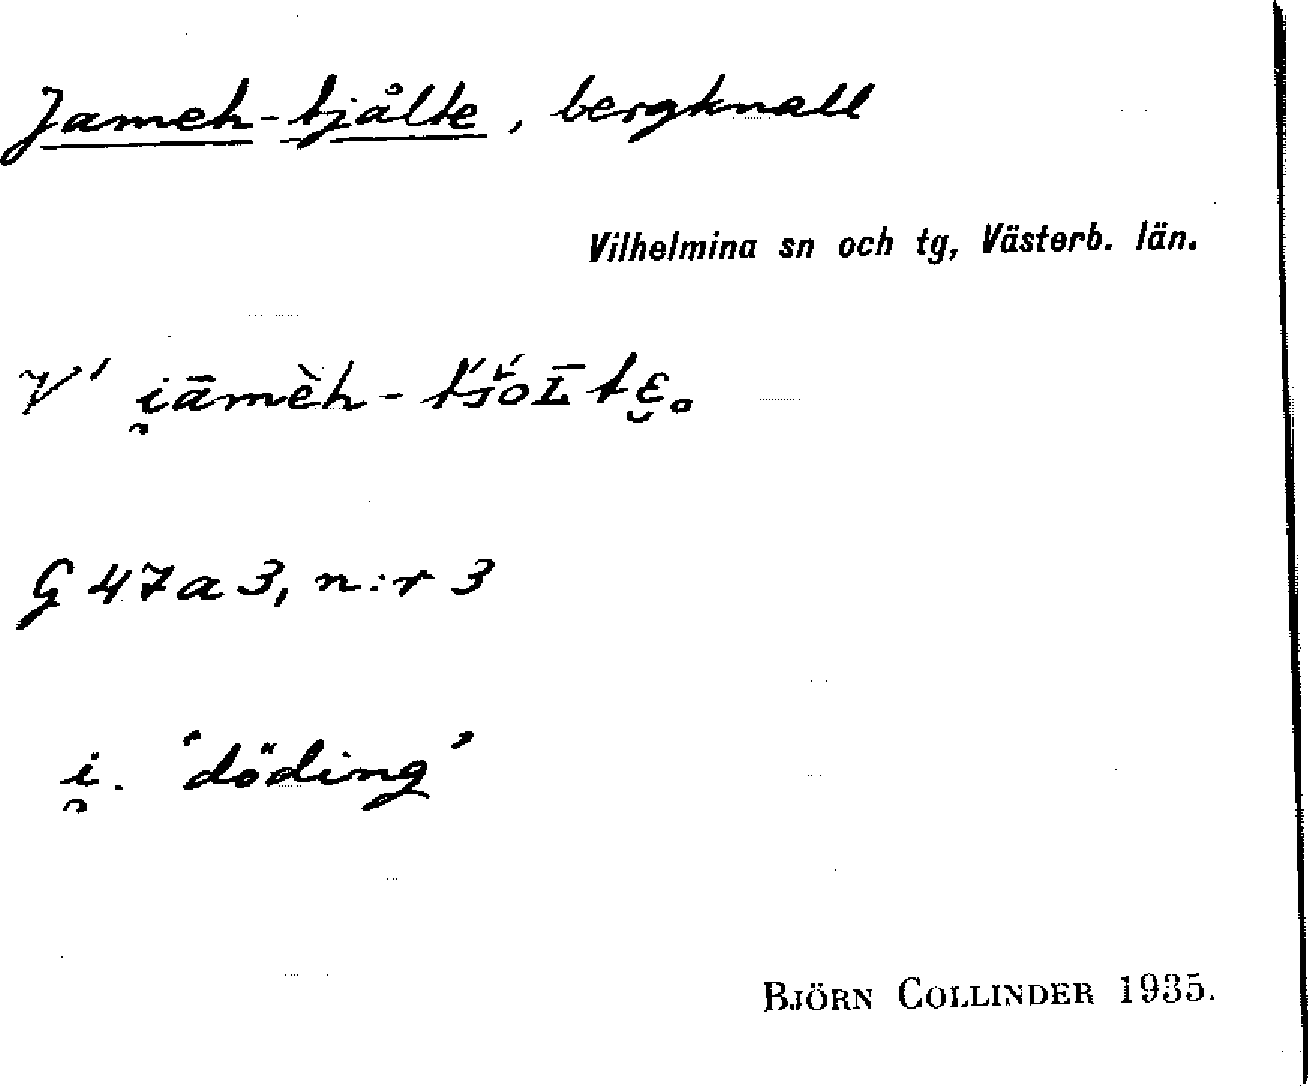 Jameh-tjålte, bergknall
Vilhelmina sn och tg, Västerb. län.
V' i̯āmèh-
G 47a3, n:r 3
i̯. 'döding'
BJÖRN COLLINDER 1935.